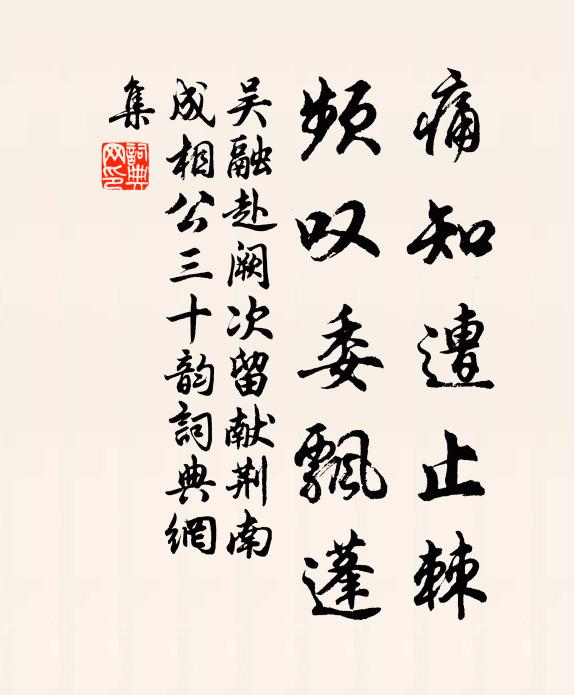 痛知遭止棘
频叹委飘蓬
吴融赴阙次留献荆南
成相公三十韵詞典網
集
詞典網印